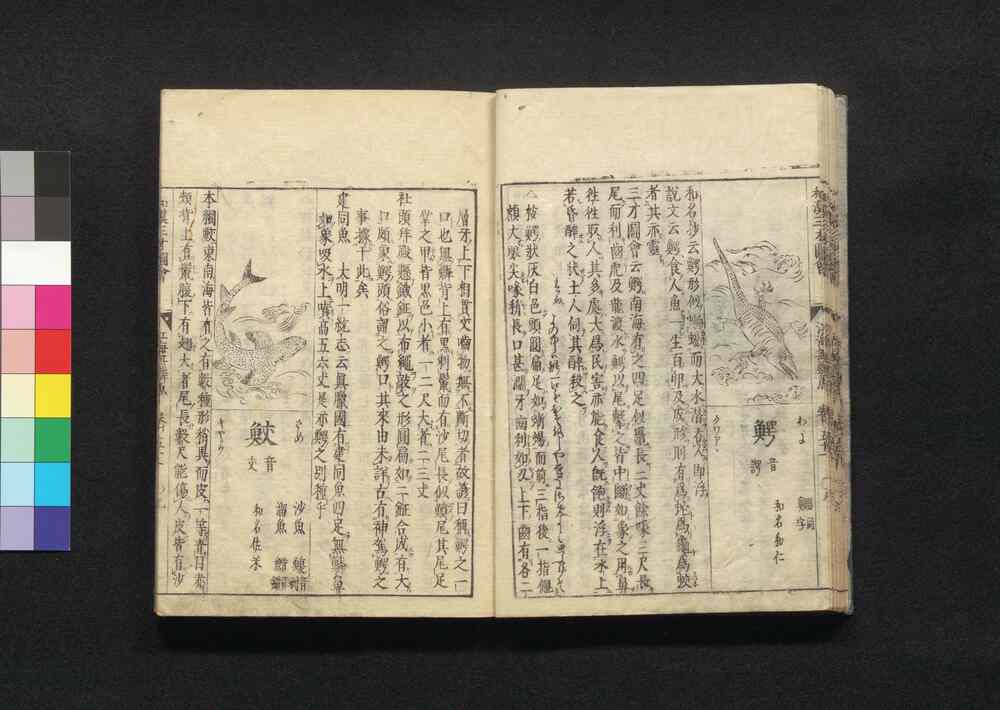 鰐
わに
音
和名和仁
和名抄云鰐形似
而大水潜
人即浮
説文云鰐食人魚一生百卵及成形則有為蛇為龜為蛟
者其亦靈
三才圖會云鰐南海有之四足似鼉長二丈餘喙三尺長
尾而利齒虎及鹿渡水鰐以尾撃之皆中斷如象之用鼻
徃徃取人其多處大為民害亦能食人既飽則浮在水上
若昏醉之状土人伺其醉殺之
△按鰐状灰白色頭圓扁足如蜥蜴而前三指後一指
頬大喙尖長口甚濶牙齒利如刃上下齒有各二
層牙上下相貫交噛物無不斷切者故諺曰稱鰐之一
口也無鱗背上有黒刺鬣而有沙尾長似
尾其尾足
掌之甲皆黒色小者一二尺大者二三丈
社頭拜殿懸鐵鉦以布繩敲之形圓扁如二鉦合成有大
口頗象鰐頭俗謂之鰐口其來由未詳古有神駕鰐之
事據于此矣
建同魚 大明一統志云眞臘國有建同魚四足無鱗鼻
如象吸水上噴高五六丈是亦鰐之別種乎
鮫
さめ
音
沙魚
溜魚
和名佐米
本綱鮫東南海皆有之有數種形稍異而皮一等青目赤
頬背上有鬣腹下有翅大者尾長數尺能傷人皮皆有沙